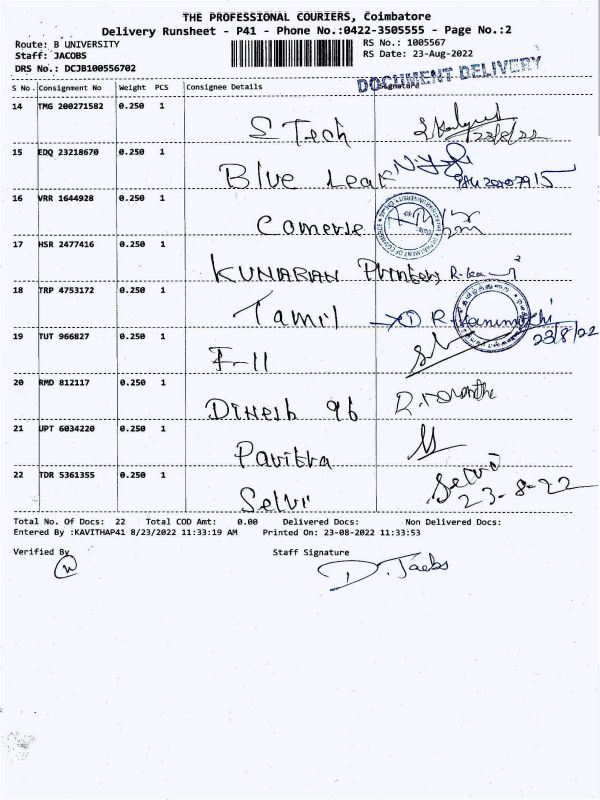 THE PROFESSIONAL COURIERS, Coimbatore
Delivery Runsheet - P41 - Phone No.:0422-3505555 - Page No.:2
Route: B UNIVERSITY
RS No.: 1005567
Staff: JACOBS
RS Date: 23-Aug-2022
DRS No.: DCJB100556702
DOCUMENT DELIVERY
S No. Consignment No Weight PCS Consignee Details Signature
14 TMG 200271582 0.250 1
S Tech 23/8/22
15 EDQ 23218670 0.250 1
Blue Leaf
16 VRR 1644928 0.250 1
Comerse
17 HSR 2477416 0.250 1
KUNARAN Printers
18 TRP 4753172 0.250 1
Tamil
23/8/22
19 TUT 966827 0.250 1
F-11
20 RMD 812117 0.250 1
Dinesh 96
21 UPT 6034220 0.250 1
Pavitra
22 TDR 5361355 0.250 1
Selvi
Selvi 23-8-22
Total No. Of Docs: 22 Total COD Amt: 0.00 Delivered Docs: Non Delivered Docs:
Entered By :KAVITHAP41 8/23/2022 11:33:19 AM Printed On: 23-08-2022 11:33:53
Verified By Staff Signature
D. Jacobs